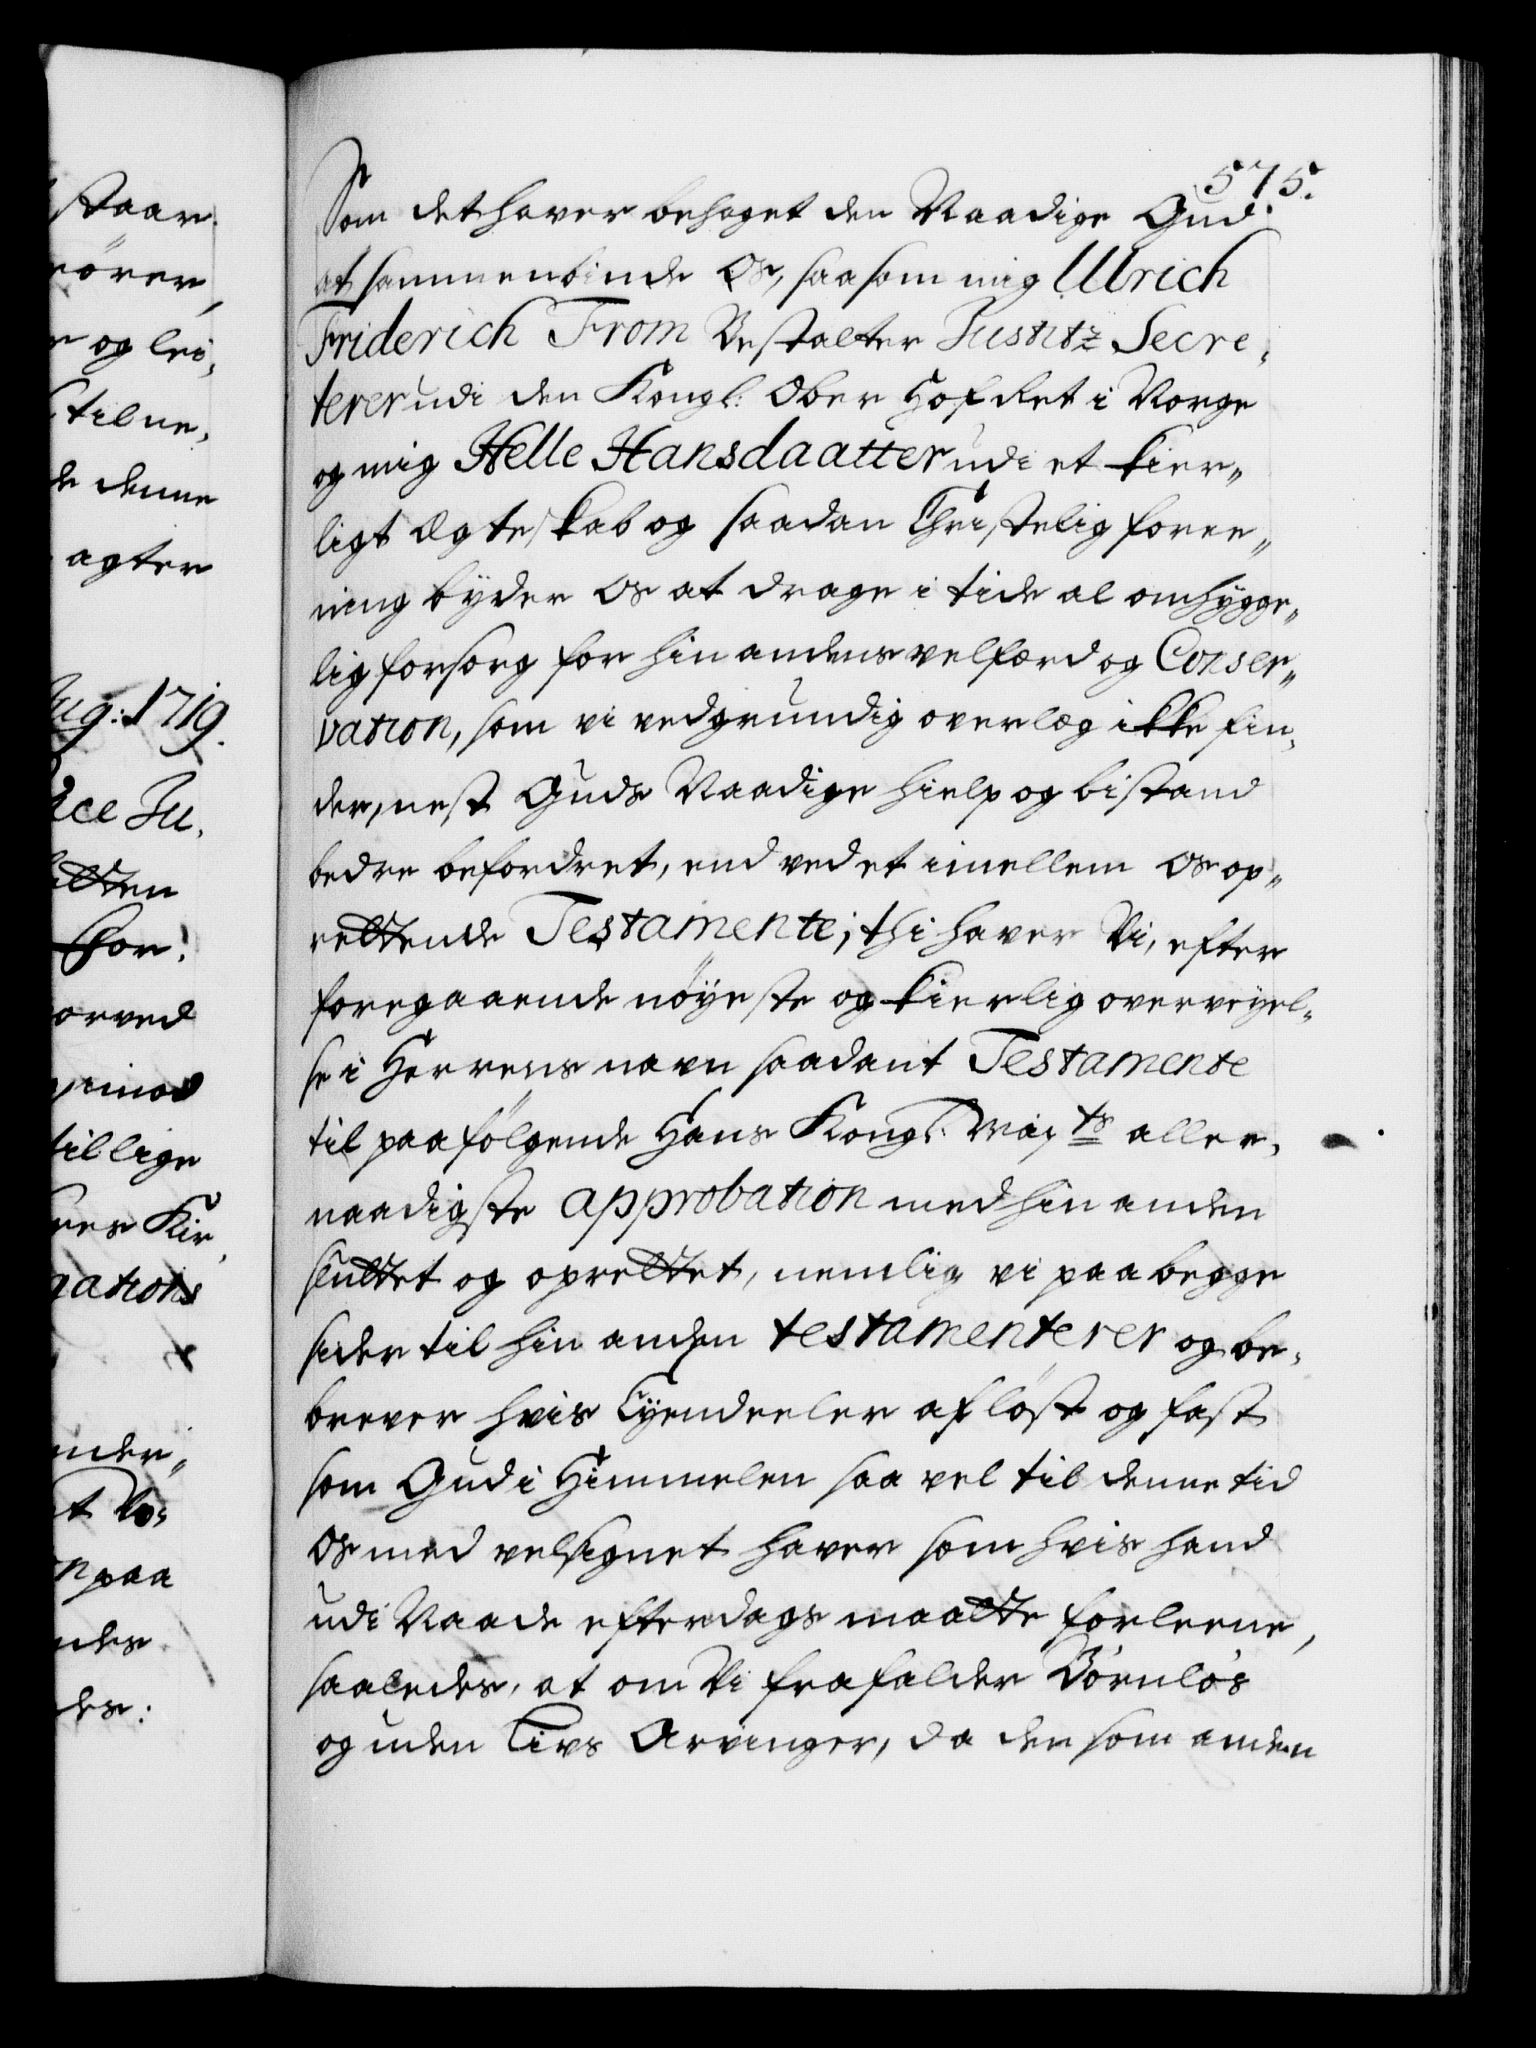 575.
Som det haver behaget den Naadige Gud
at sammenbinde os, saasom mig Ulrich
Friderich From Bestalter Justitz Secre,
terer udi den Kongl: Ober Hof Ret i Norge
og mig Helle Hansdaatter udi et kier„
ligt Ægteskab og saadan Christelig foree„
ning byder os at drage i tide al omhygge„
lig forsorg for hin andens velfærd og Conser„
vation, som vi ved grundig overlæg ikke fin,
der, nest Guds Naadige hielp og bistand
bedre befordret, end ved et imellem os op„
rettende Testamente; thi haver Vi, efter
foregaaende nöyeste og kierlig overveyel„
se i Herrens navn saadant Testamente
til paafölgende Hans Kongl: May ts aller,
naadigste approbation med hin anden
sluttet og oprettet, nemlig vi paa begge
sider til hin anden testamenterer og be,
brever hvis Eyendeeler af löst og fast
som Gud i Himmelen saa vel til denne tid
os med velsignet haver som hvis hand
udi Naade efterdags maatte forleene,
saaledes, at om Vi frafalder Börnlös
og uden Livs Arvinger, da den som anden
staar
rörer,
og lei,
til ne,
denne
agter
Aug: 1719.
Ju,
for:
orved
imod
tillige
Kir,
gations
paa